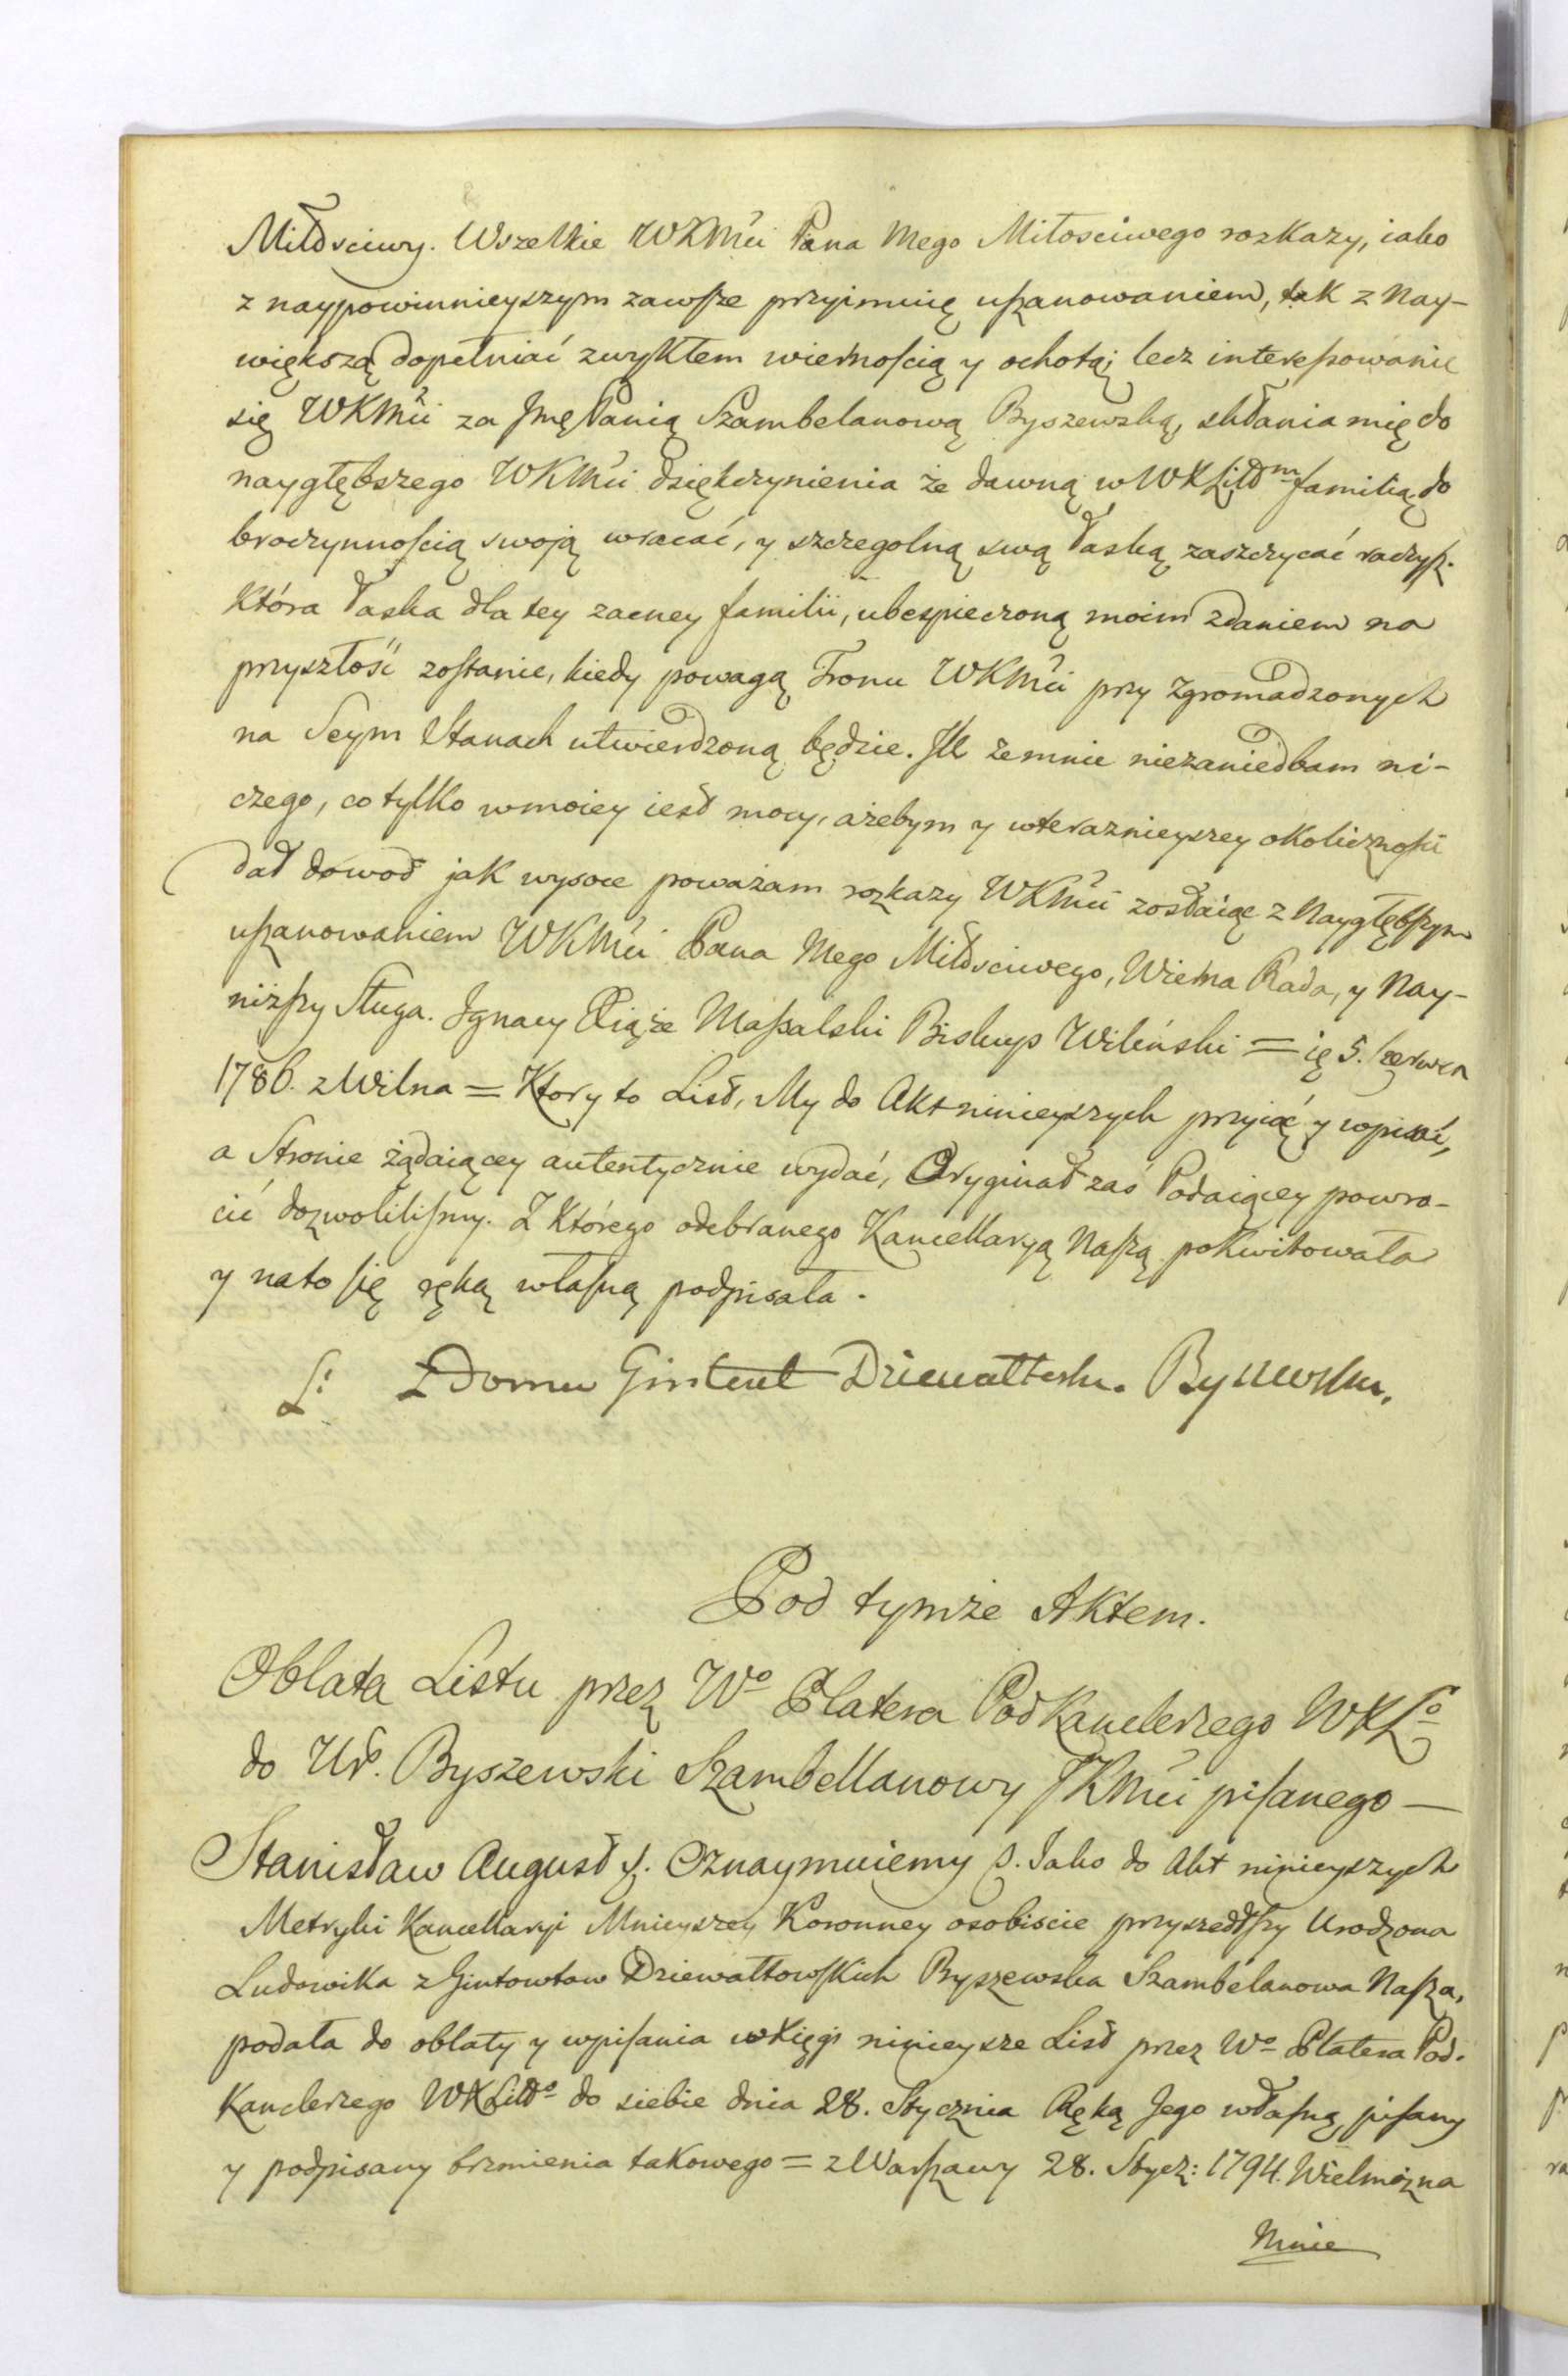 Miłościwy. Wszelkie WKMći Pana Mego Miłosciwego rozkazy, iako
z naypowinnieyszym zawsze przyimuię uszanowaniem, tak z Nay-
większą dopełniać zwykłem wiernością y ochotą; lecz interessowanie
się WKMći za Jmę Panią Szambelanową Byszewską, skłania mię do
naygłębszego WKMći dziękczynienia że dawną w WXLitt̃m familią do
broczynnością swoją wracać, y szczegolną swą łaską zaszczycać raczysz.
Która łaska dla tey zacney familii, ubespieczoną moim zdaniem na
przyszłość zostanie, kiedy powagą Tronu WKMći przy zgromadzonych
na Seym Stanach utwierdzoną będzie. Ile zemnie niezaniedbam ni-
czego, co tylko wmoiey iest mocy, ażebym y wteraznieyszey okoliczności
dał dowod jak wysoce poważam rozkazy WKMći zostaiąc z Naygłębszym
uszanowaniem WKMći Pana Mego Miłościwego, Wierna Rada, y Nay-
niższy Sługa. Ignacy Xiąże Massalski Biskup Wileński = 5. Czerwca
1786. z Wilna = Ktory to List, My do Akt ninieyszych przyiąć y wpisać,
a Stronie żądaiącey autentycznie wydać, Oryginał zaś Podaiącey powro-
cić dozwolilismy. Z Którego odebranego Kancellaryą Naszą pokwitowała
y nato się ręką własną podpisała.
L: Z Domu Gintowt Dziewałtowska. Byszewska.
Pod tymże Aktem.
Oblata Listu przez Wo Platera Podkanclerzego WXLo
do Ur. Byszewski Szambellanowy JKMći pisanego —
Stanisław August &. Oznaymuiemy &. Iako do Akt ninieyszych
Metryki Kancellaryi Mnieyszey Koronney osobiscie przyszedłszy Urodzona
Ludowika z Gintowtow Dziewałtowskich Byszewska Szambelanowa Nasza,
podała do oblaty y wpisania w Xięgi ninieysze List przez Wo Platera Pod-
Kanclerzego WXLitto do siebie dnia 28. Stycznia Ręką Jego własną pisany
y podpisany brzmienia takowego = z Warszawy 28. Stycz: 1794. Wielmożna
Mnie